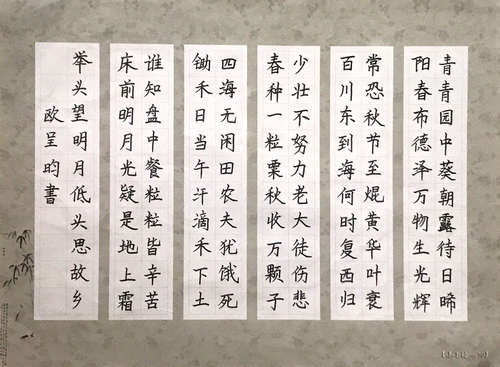 青青园中葵朝露待日晞
阳春布德泽万物生光辉
常恐秋节至焜黄华叶衰
百川东到海何时复西归
少壮不努力老大徒伤悲
春种一粒粟秋收万颗子
四海无闲田农夫犹饿死
锄禾日当午汗滴禾下土
谁知盘中餐粒粒皆辛苦
床前明月光疑是地上霜
举头望明月低头思故乡
欧呈昀書